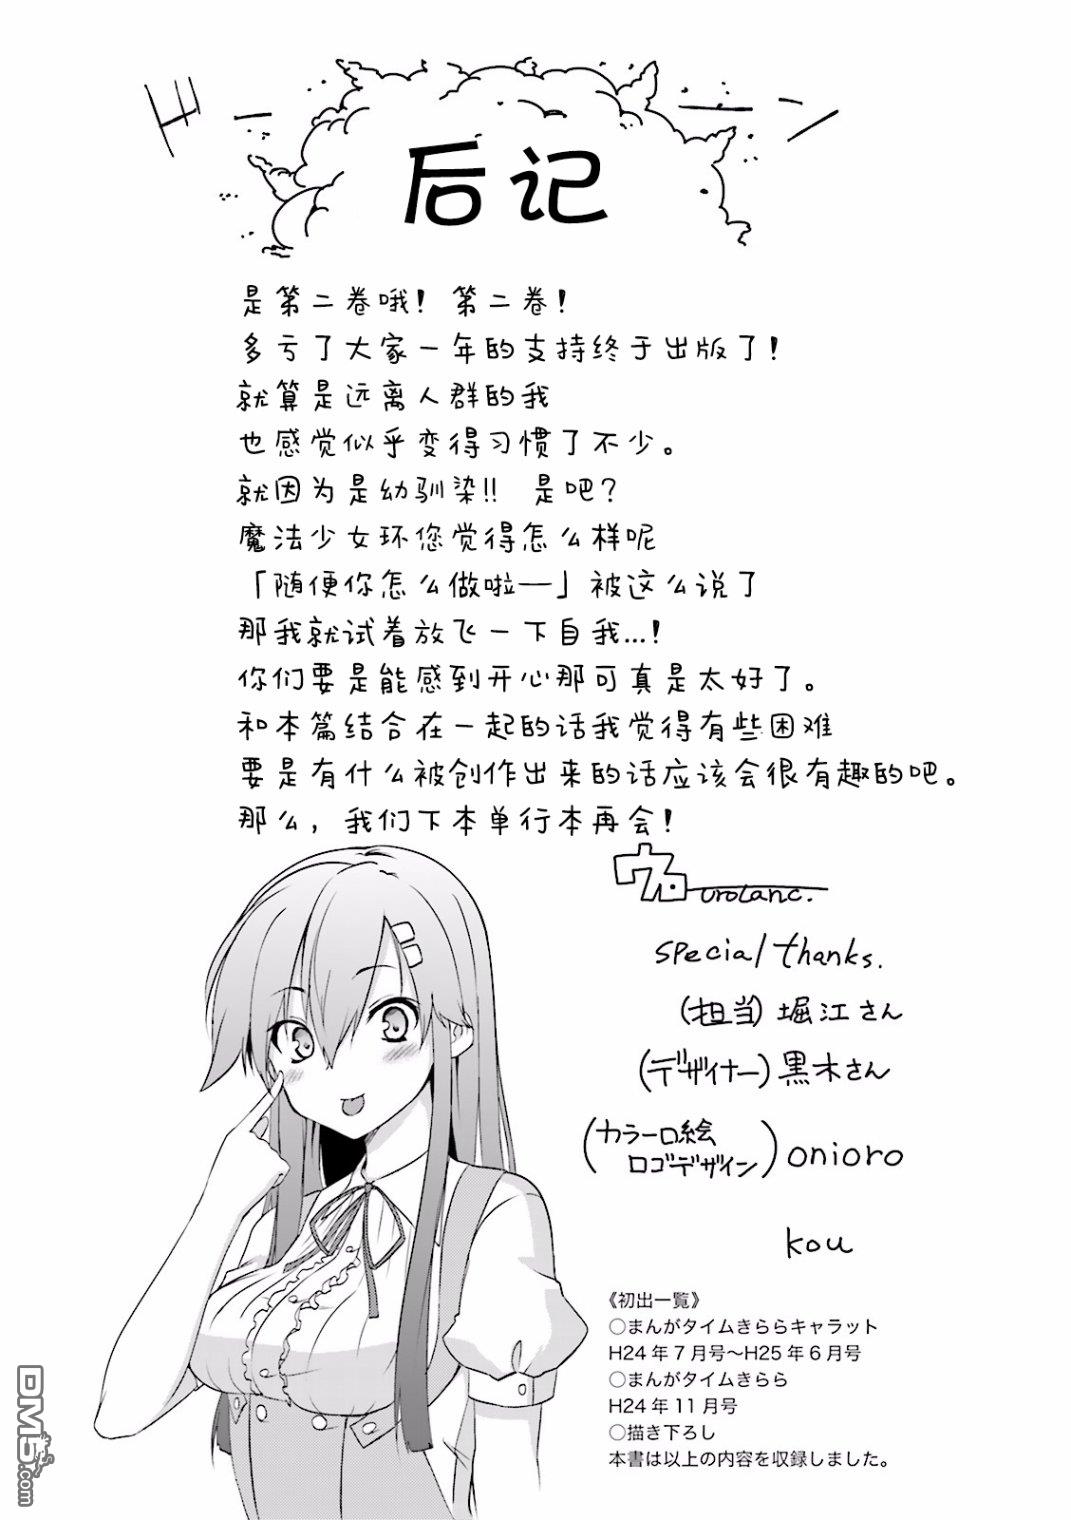 ドーーン
后记
是第二卷哦! 第二卷!
多亏了大家一年的支持终于出版了!
就算是远离人群的我
也感觉似乎变得习惯了不少。
就因为是幼驯染!! 是吧?
魔法少女环您觉得怎么样呢
「随便你怎么做啦—」被这么说了
那我就试着放飞一下自我...!
你们要是能感到开心那可真是太好了。
和本篇结合在一起的话我觉得有些困难
要是有什么被创作出来的话应该会很有趣的吧。
那么, 我们下本单行本再会!
ウロ urotanc.
special thanks.
(担当) 堀江さん
(デザイナー) 黒木さん
(カラー口絵
ロゴデザイン) onioro
kou
《初出一覧》
○まんがタイムきららキャラット
H24 年 7 月号〜H25 年 6 月号
○まんがタイムきらら
H24 年 11 月号
○描き下ろし
本書は以上の内容を収録しました。
DM5.com